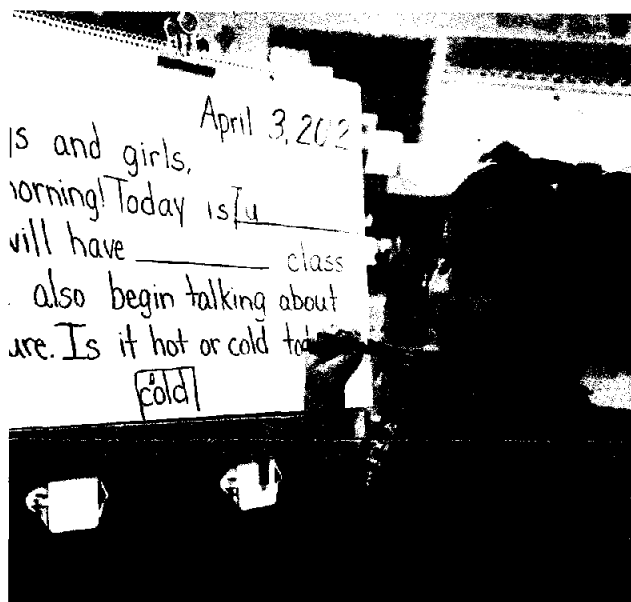 April 3, 202
ys and girls,
morning! Today is Tu______
will have ________ class
also begin talking about
ure. Is it hot or cold tod
cold